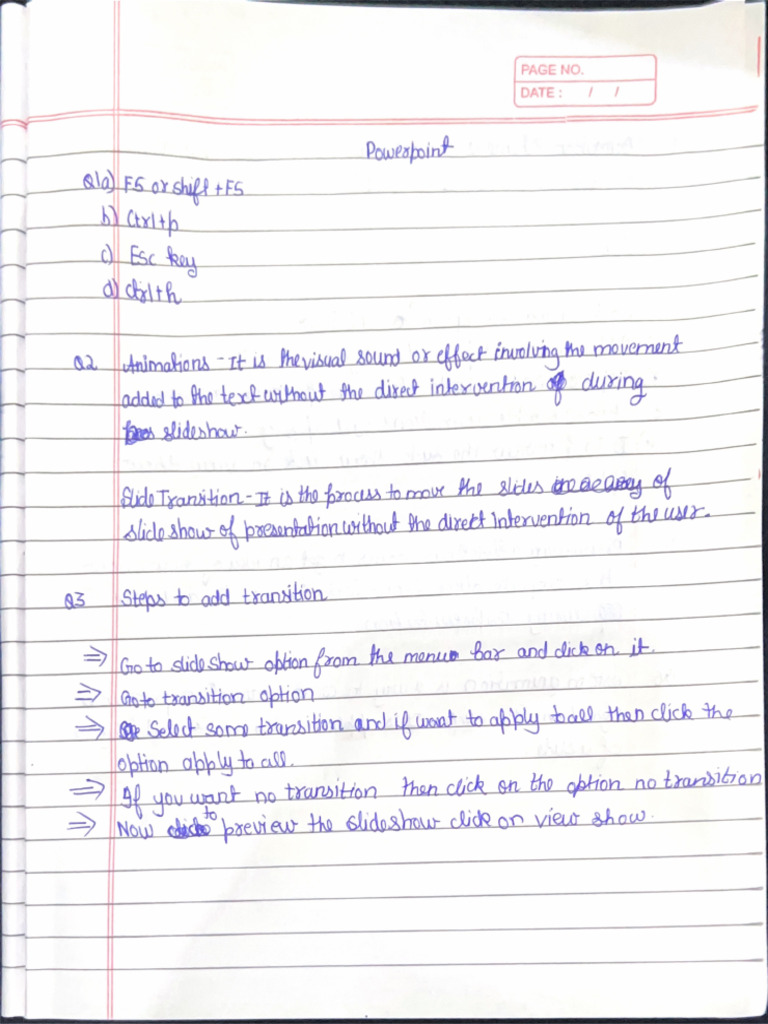 PAGE NO.
DATE : / /
Powerpoint
Q1a) F5 or shift + F5
b) Ctrl+p
c) Esc key
d) ctrl+h
Q2 Animations - It is the visual sound or effect involving the movement
added to the text without the direct intervention during
slideshow.
Slide Transition - It is the process to move the slides of
slide show of presentation without the direct intervention of the user.
Q3 Steps to add transition
⇒ Go to slide show option from the menu bar and click on it.
⇒ Goto transition option
⇒ Select some transition and if want to apply to all then click the
option apply to all.
⇒ If you want no transition then click on the option no transition
⇒ Now to preview the slideshow click on view show.